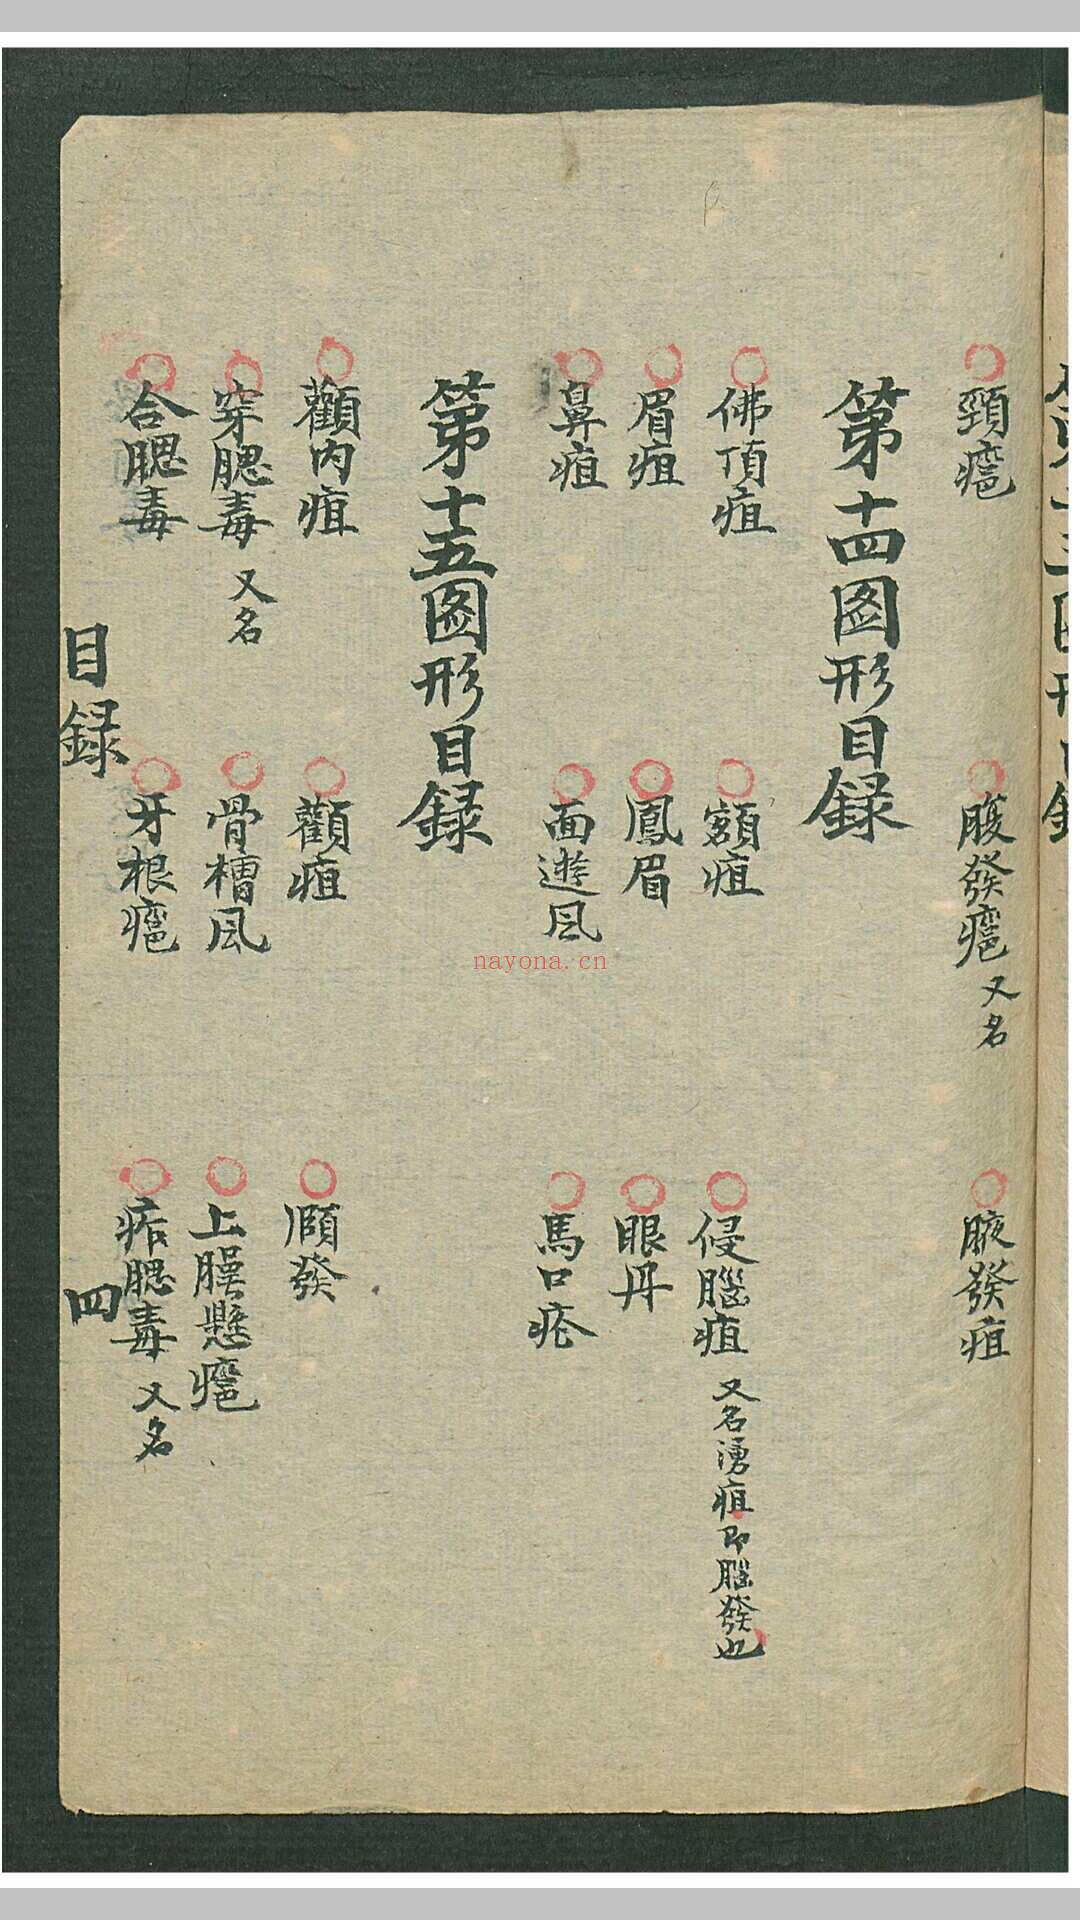 頸癰 腹發癰 又名 腋發疽
第十四图形目録
佛頂疽 額疽 侵腦疽 又名湧疽即腦發也
眉疽 鳳眉 眼丹
鼻疽 面遊风 馬口疮
第十五图形目録
顴内疽 顴疽 頎發
穿腮毒 又名 骨槽风 上腭懸癰
合腮毒 牙根癰 痄腮毒 又名
目録 四
nayona.cn